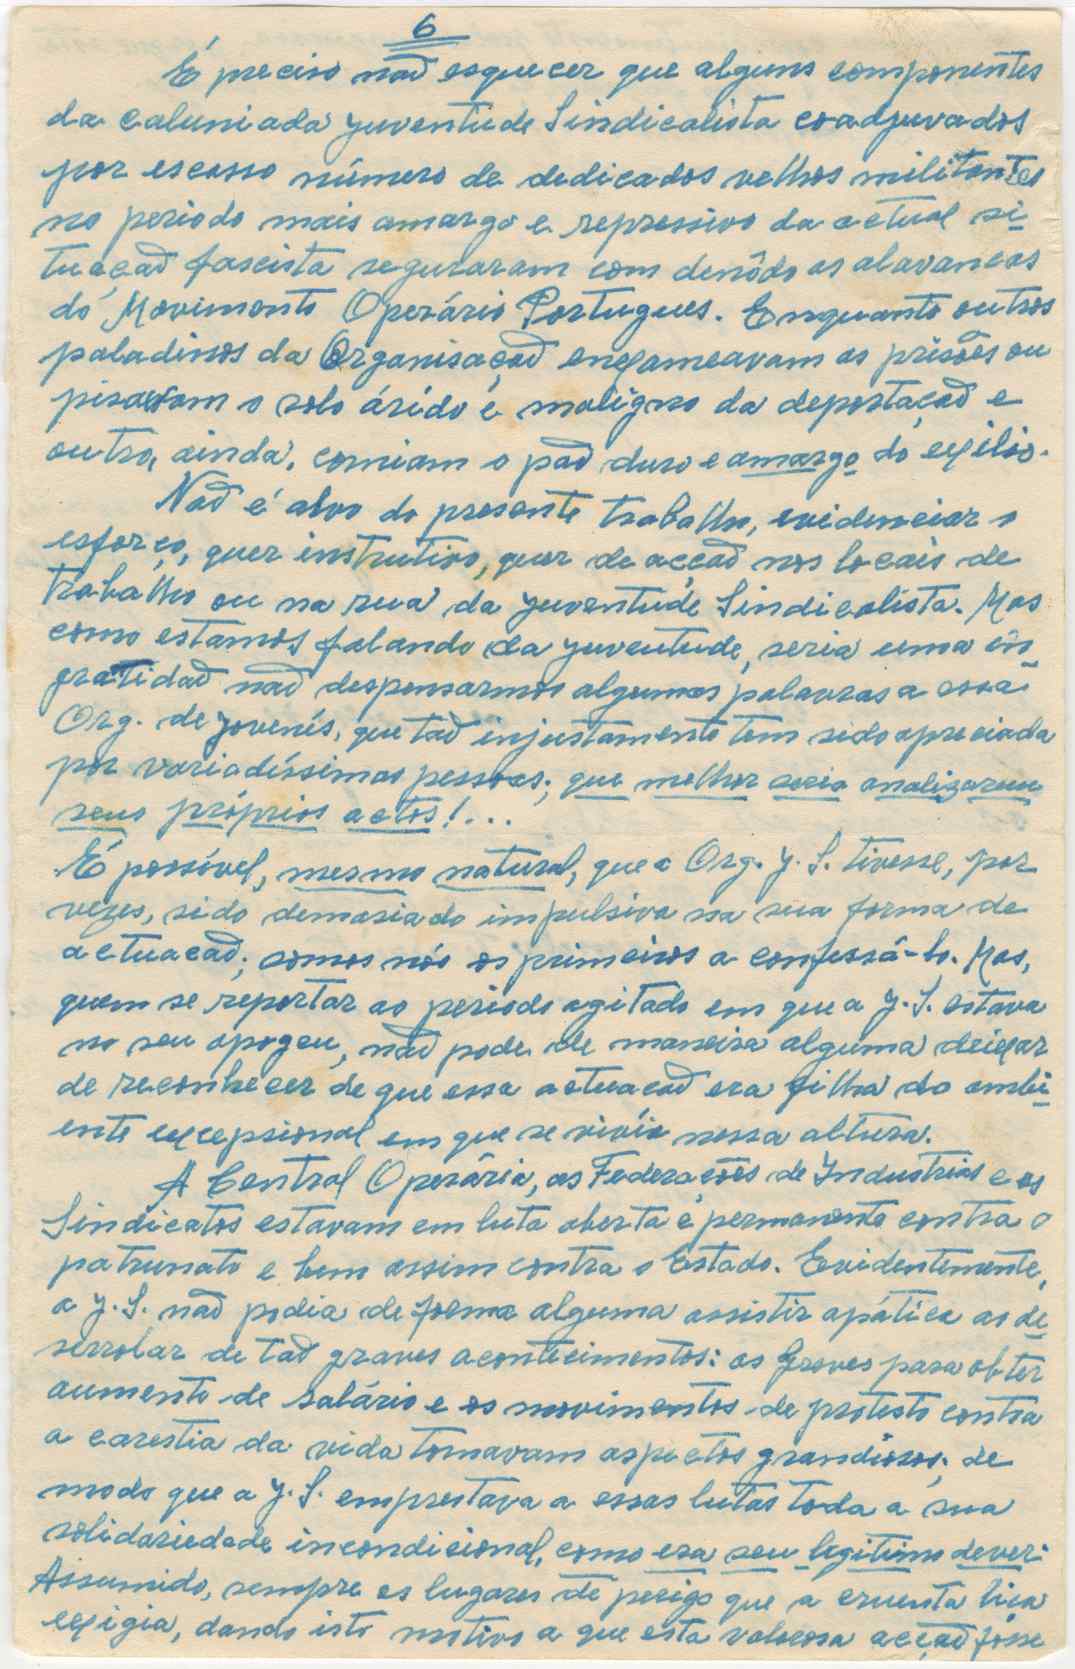 6
É preciso não esquecer que alguns componentes
da caluniada Juventude Sindicalista coadjuvados
por escasso número de dedicados velhos militantes
no periodo mais amargo e repressivo da actual si-
tuação fascista seguraram com denôdo as alavancas
do Movimento Operário Portugues. Enquanto outros
paladinos da Organisação enxameavam as prisões ou
pisavam o solo árido e maligno da deportação e
outro, ainda, comiam o pão duro e amargo do exilio.
Não é alvo do presente trabalho, evidenciar o
esforço, quer instrutivo, quer de acção nos locais de
trabalho ou na rua da Juventude Sindicalista. Mas
como estamos falando da juventude, seria uma in-
gratidão não dispensarmos algumas palavras a essa
Org. de jovens, que tão injustamente tem sido apreciada
por variadíssimas pessoas; que melhor seria analizarem
seus próprios actos!...
É possível, mesmo natural, que a Org. J. S. tivesse, por
vezes, sido demasiado impulsiva na sua forma de
actuacão; somos nós os primeiros a confessá-lo. Mas,
quem se reportar ao periodo agitado em que a J. S. estava
no seu apogeu, não pode de maneira alguma deixar
de reconhecer de que essa actuacão era filha do ambi-
ente excepsional em que se vivia nessa altura.
A Central Operária, as Federações de Industrias e os
Sindicatos estavam em luta aberta e permanente contra o
patrunato e bem assim contra o Estado. Evidentemente,
a J. S. não podia de forma alguma assistir apática ao de-
serrolar de tão graves acontecimentos: as Greves para obter
aumento de salário e os movimentos de protesto contra
a carestia da vida tomavam aspectos grandiosos; de
modo que a J. S. emprestava a essas lutas toda a sua
solidariedade incondicional, como era seu legitimo dever.
Assumido, sempre os lugares de perigo que a cruenta liça
exigia, dando isto motivo a que esta valorosa acção fosse